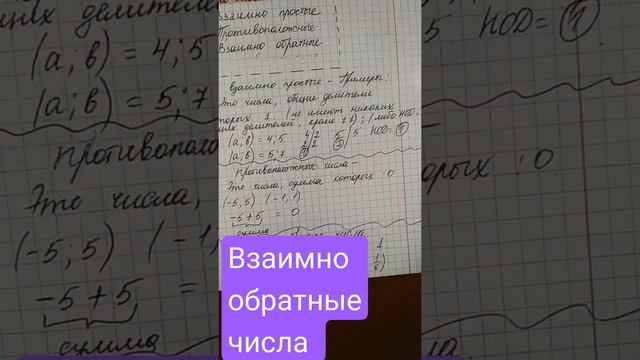 Взаимно простые
Противоположные
Взаимно обратные
взаимно простые – Примеры:
Это числа, общие делители
которых 1 (не имеют никаких
делителей, кроме 1); (либо НОД=
(а; в) = 4; 5 4|2 5|5 НОД= 1
2|2
(а; в) = 5; 7
противоположные числа –
Это числа, сумма которых 0
(-5, 5) (-1, 1)
-5 + 5 = 0
сумма
числа
1
щих делителей
(а; в) = 4; 5
(а; в) = 5; 7
противополо
Это числа,
(-5; 5) (-1,
-5 + 5 =
сумма
5 НОД= 1
орых 0
Взаимно
обратные
числа